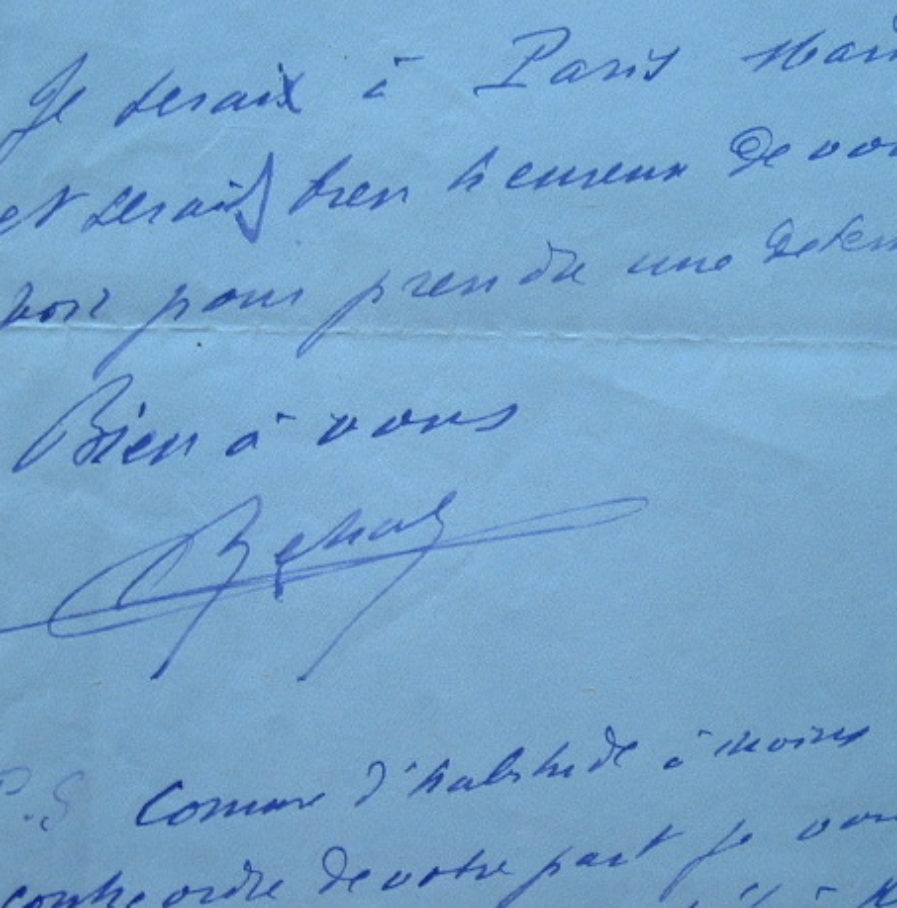 Je serais à Paris Mar
et serais bien heureux de vou
voir pour prendre une déter
Bien à vous
P.S Comme d'habitude à moins
contre ordre de votre part je vou